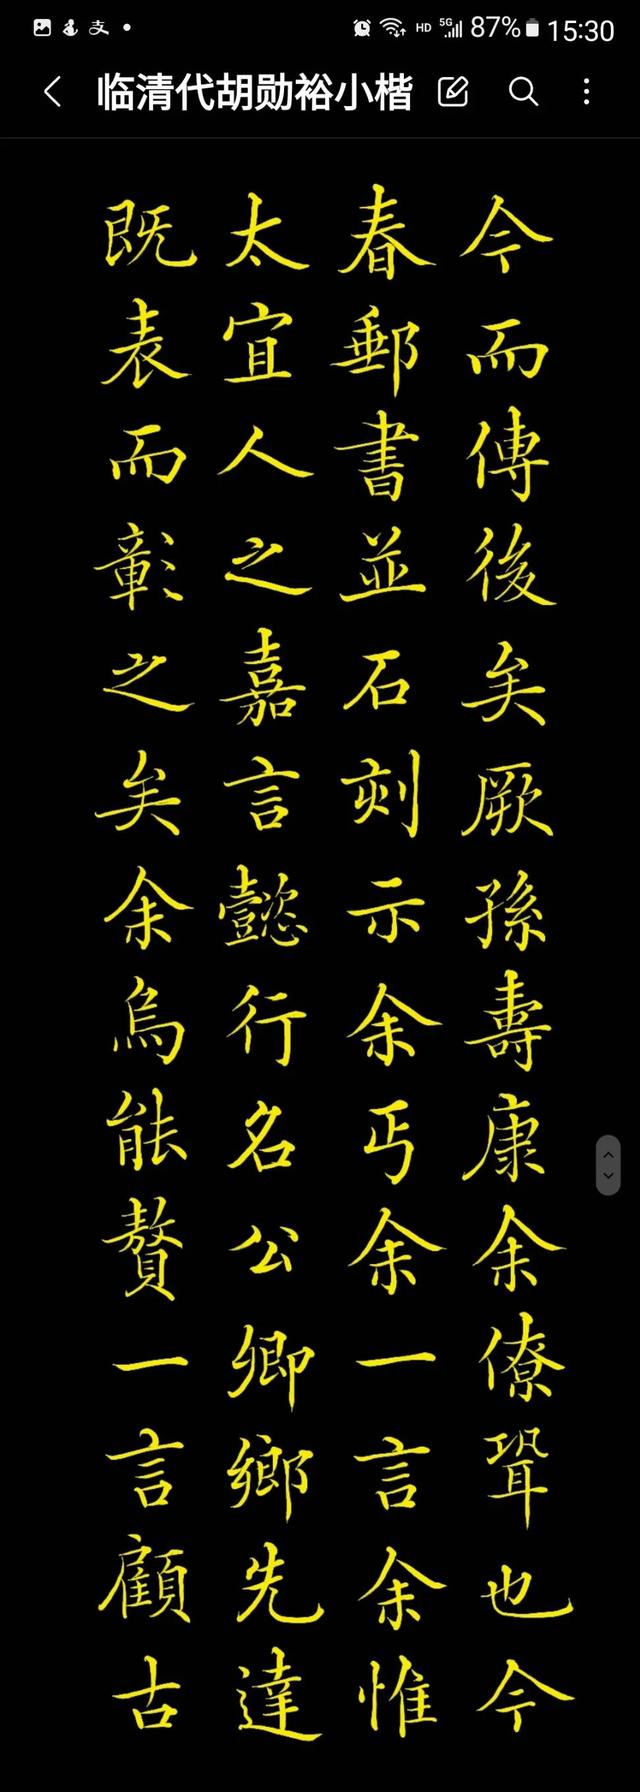 87% 15:30
HD 5G
临清代胡勋裕小楷
今而傳後矣厥孫壽康余僚壻也今
春郵書並石刻示余丐余一言余惟
太宜人之嘉言懿行名公卿鄉先達
既表而彰之矣余烏能贅一言顧古